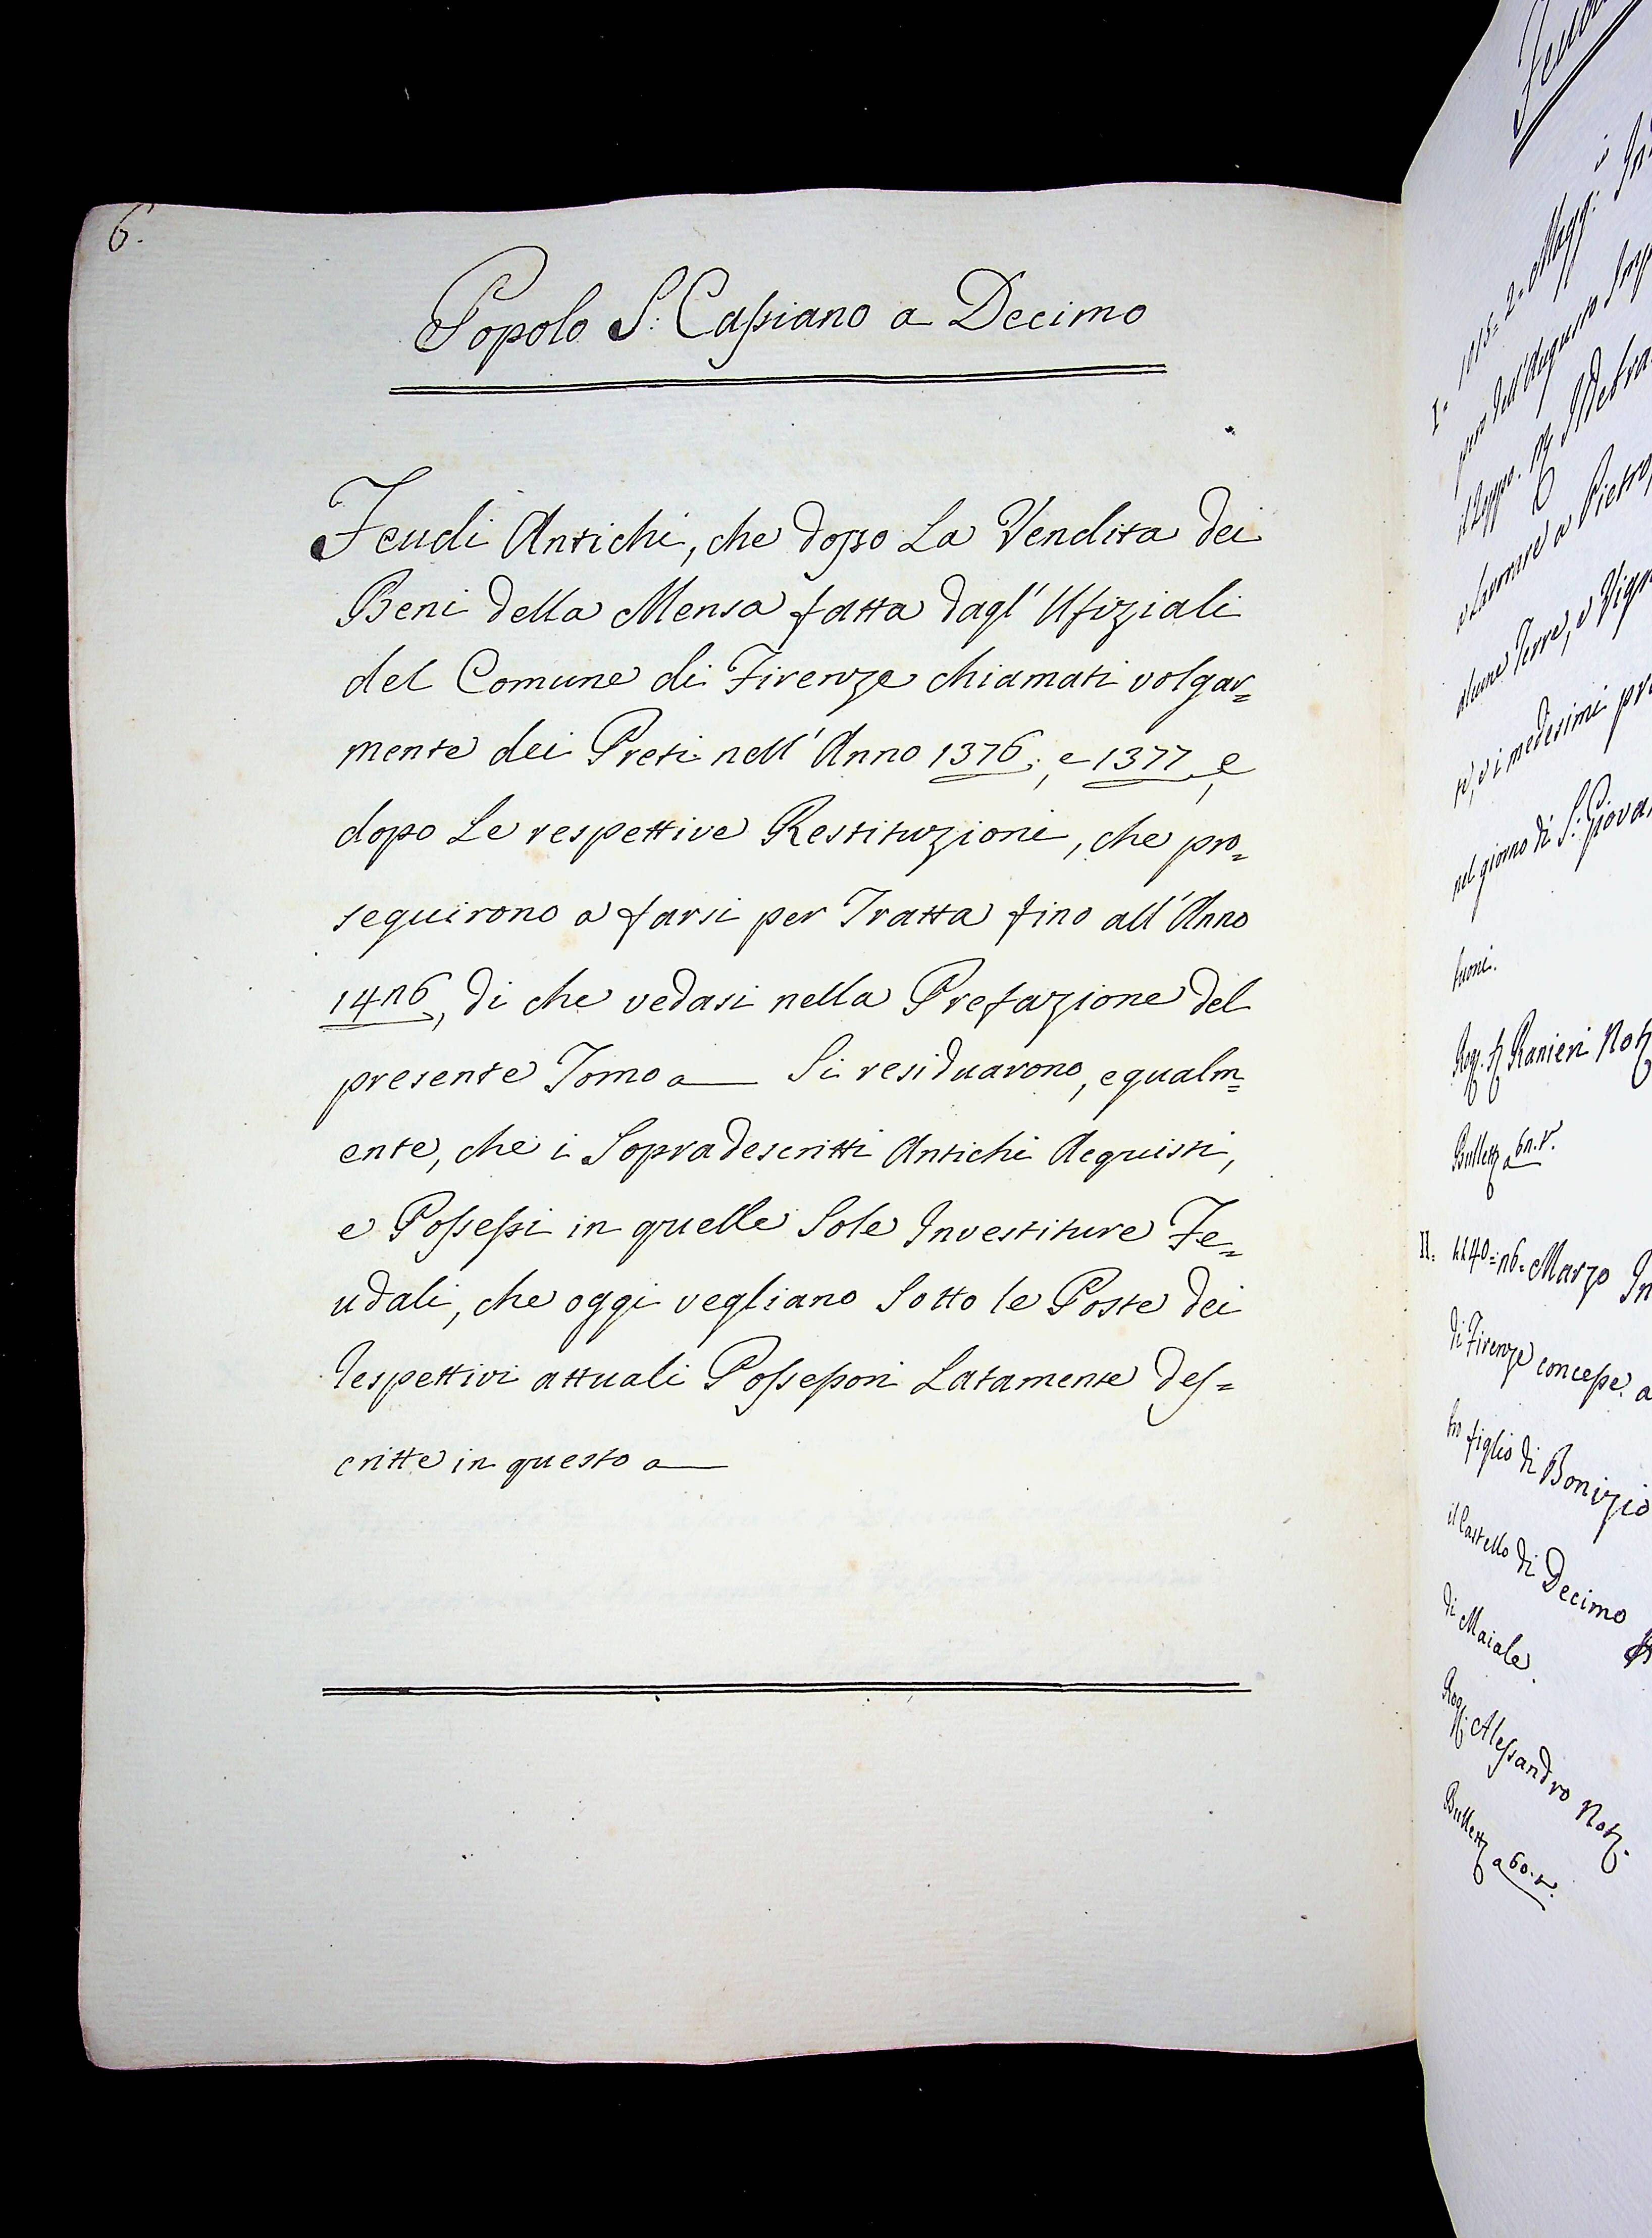 6.
Popolo S: Cassiano a Decimo
Feudi Antichi, che doppo La Vendita dei
Beni della Mensa fatta dagl' Ufiziali
del Comune di Firenze chiamati volgar=
mente dei Preti nell' Anno 1376; e 1377, e
dopo Le respettive Restituzioni, che pro=
seguirono a farsi per Tratta fino all' Anno
1426, di che vedasi nella Prefazione del
presente Tomo a Si residuarono, equalm=
ente, che i Sopradescritti Antichi Acquisti,
e Possessi in quelle Sole Investiture Fe=
udali, che oggi vegliano Sotto le Poste dei
respettivi attuali Possessori Latamente des=
critte in questo a
I=
pero dell' Augusto
e lavorare a Pietro,
alcune Terre, e Vign
te, e i medesimi pr
nel giorno di S: Giova
Ranieri Not
II= Marzo In
di Firenze concesse a
figlio di Bonizio
il Castello di Decimo
di Maiale.
Rog: Alessandro Not.
Bullett a 60. t.